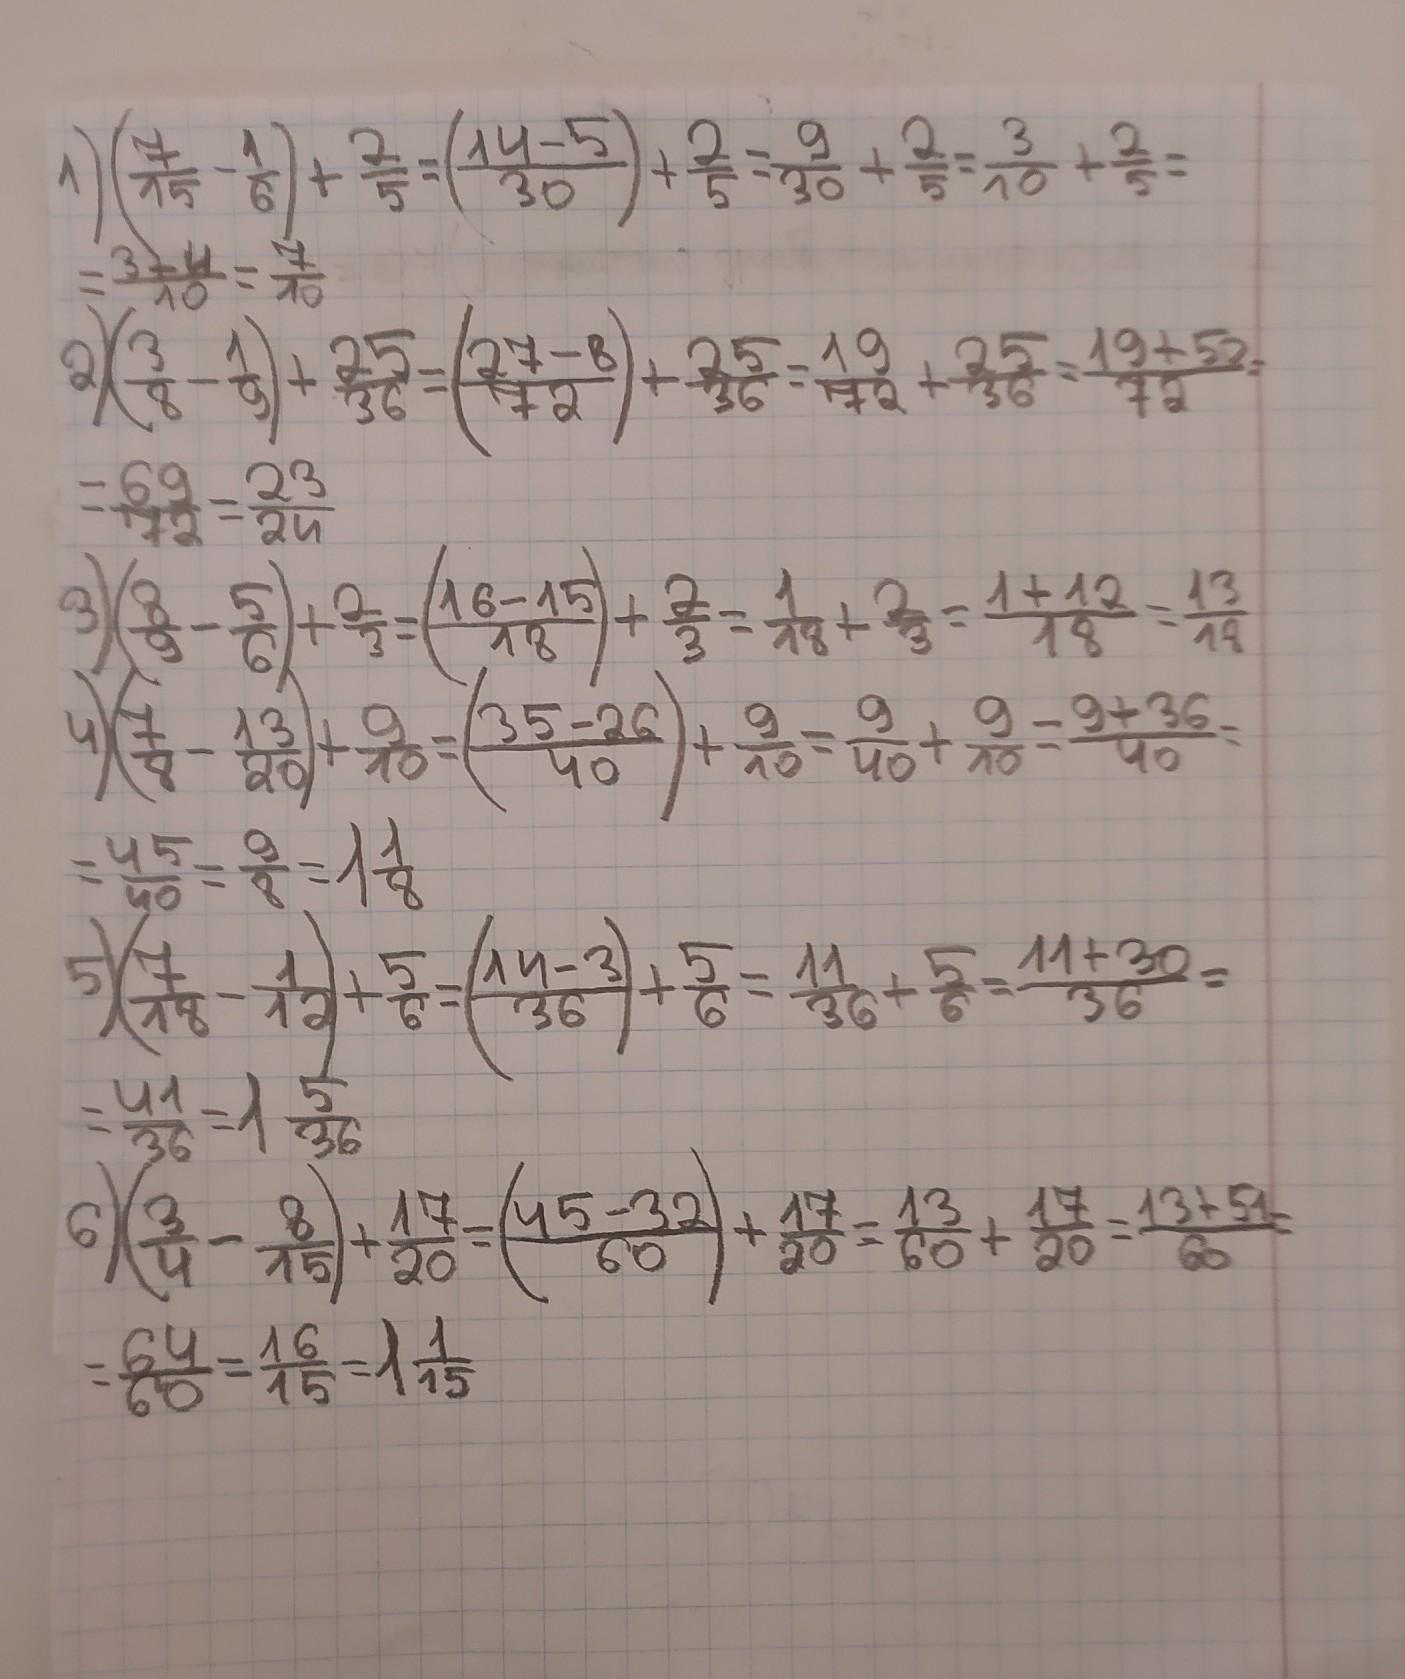 1) (7/15 - 1/6) + 2/5 = (14-5/30) + 2/5 = 9/30 + 2/5 = 3/10 + 2/5 =
= 3+4/10 = 7/10
2) (3/8 - 1/9) + 25/36 = (27-8/72) + 25/36 = 19/72 + 25/36 = 19+50/72 =
= 69/72 = 23/24
3) (8/9 - 5/6) + 2/3 = (16-15/18) + 2/3 = 1/18 + 2/3 = 1+12/18 = 13/18
4) (7/8 - 13/20) + 9/10 = (35-26/40) + 9/10 = 9/40 + 9/10 = 9+36/40 =
= 45/40 = 9/8 = 1 1/8
5) (7/18 - 1/12) + 5/6 = (14-3/36) + 5/6 = 11/36 + 5/6 = 11+30/36 =
= 41/36 = 1 5/36
6) (3/4 - 8/15) + 17/20 = (45-32/60) + 17/20 = 13/60 + 17/20 = 13+51/60 =
= 64/60 = 16/15 = 1 1/15